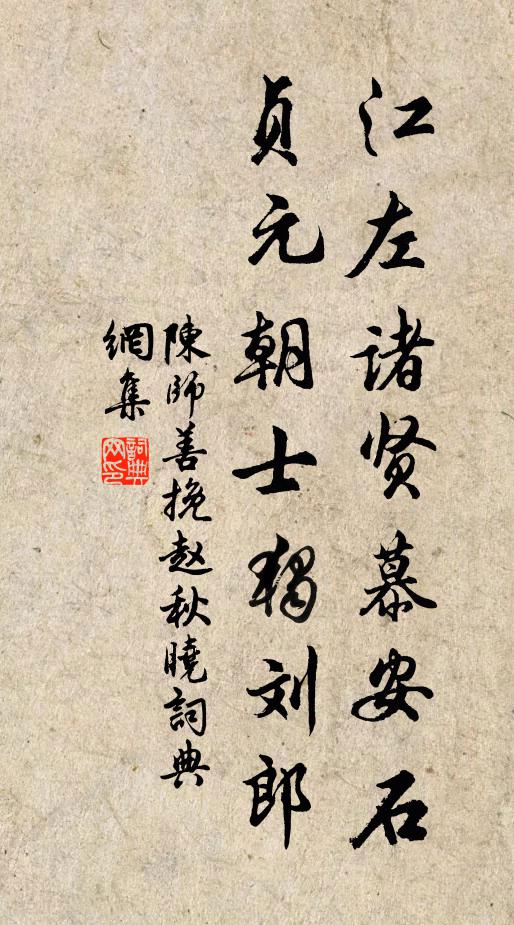 江左诸贤慕安石
贞元朝士独刘郎
陳師善挽赵秋曉詞典
網集
詞典
网印